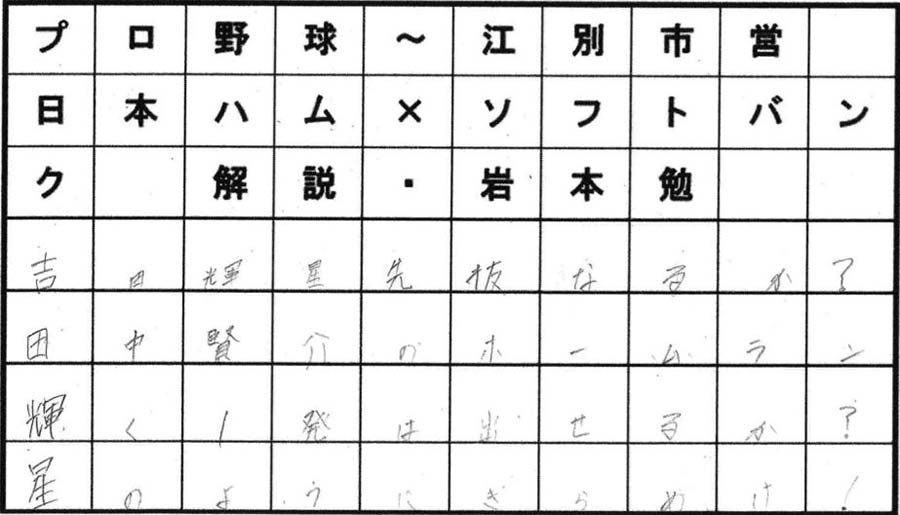 プロ野球～江別市営
日本ハム×ソフトバン
ク 解説・岩本勉
吉田輝星先抜なるか?
田中賢介のホームラン
輝く1発は出せるか?
星のようにきらめけ!